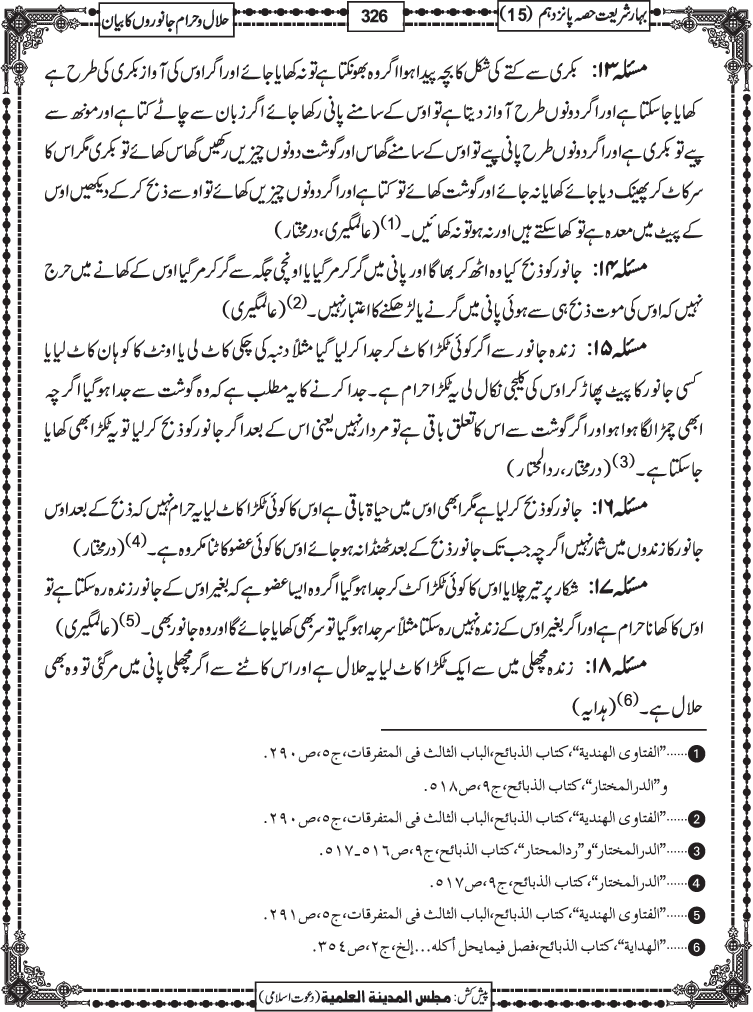 بہار شریعت حصہ پانزدہم (15)
326
حلال و حرام جانوروں کا بیان
مسئلہ ۱۳: بکری سے کتے کی شکل کا بچہ پیدا ہوا اگر وہ بھونکتا ہے تو نہ کھایا جائے اور اگر اوس کی آواز بکری کی طرح ہے
کھایا جاسکتا ہے اور اگر دونوں طرح آواز دیتا ہے تو اوس کے سامنے پانی رکھا جائے اگر زبان سے چاٹے کتا ہے اور مونھ سے
پیے تو بکری ہے اور اگر دونوں طرح پانی پیے تو اوس کے سامنے گھاس اور گوشت دونوں چیزیں رکھیں گھاس کھائے تو بکری مگر اس کا
سر کاٹ کر پھینک دیا جائے کھایا نہ جائے اور گوشت کھائے تو کتا ہے اور اگر دونوں چیزیں کھائے تو اوسے ذبح کر کے دیکھیں اوس
کے پیٹ میں معدہ ہے تو کھا سکتے ہیں اور نہ ہو تو نہ کھائیں۔(1) (عالمگیری، درمختار)
مسئلہ ۱۴: جانور کو ذبح کیا وہ اٹھ کر بھاگا اور پانی میں گر کر مر گیا یا اونچی جگہ سے گر کر مر گیا اوس کے کھانے میں حرج
نہیں کہ اوس کی موت ذبح ہی سے ہوئی پانی میں گرنے یا لڑھکنے کا اعتبار نہیں۔(2) (عالمگیری)
مسئلہ ۱۵: زندہ جانور سے اگر کوئی ٹکڑا کاٹ کر جدا کر لیا گیا مثلاً دنبہ کی چکی کاٹ لی یا اونٹ کا کوہان کاٹ لیا یا
کسی جانور کا پیٹ پھاڑ کر اوس کی کلیجی نکال لی یہ ٹکڑا حرام ہے۔ جدا کرنے کا یہ مطلب ہے کہ وہ گوشت سے جدا ہو گیا اگرچہ
ابھی چمڑا لگا ہوا ہو اور اگر گوشت سے اس کا تعلق باقی ہے تو مردار نہیں یعنی اس کے بعد اگر جانور کو ذبح کر لیا تو یہ ٹکڑا بھی کھایا
جاسکتا ہے۔(3) (درمختار، ردالمحتار)
مسئلہ ۱۶: جانور کو ذبح کر لیا ہے مگر ابھی اوس میں حیاۃ باقی ہے اوس کا کوئی ٹکڑا کاٹ لیا یہ حرام نہیں کہ ذبح کے بعد اوس
جانور کا زندوں میں شمار نہیں اگرچہ جب تک جانور ذبح کے بعد ٹھنڈا نہ ہو جائے اوس کا کوئی عضو کاٹنا مکروہ ہے۔(4) (درمختار)
مسئلہ ۱۷: شکار پر تیر چلایا اوس کا کوئی ٹکڑا کٹ کر جدا ہو گیا اگر وہ ایسا عضو ہے کہ بغیر اوس کے جانور زندہ رہ سکتا ہے تو
اوس کا کھانا حرام ہے اور اگر بغیر اوس کے زندہ نہیں رہ سکتا مثلاً سر جدا ہو گیا تو سر بھی کھایا جائے گا اور وہ جانور بھی۔(5) (عالمگیری)
مسئلہ ۱۸: زندہ مچھلی میں سے ایک ٹکڑا کاٹ لیا یہ حلال ہے اور اس کاٹنے سے اگر مچھلی پانی میں مر گئی تو وہ بھی
حلال ہے۔(6) (ہدایہ)
1......”الفتاوی الهندیة“،کتاب الذبائح،الباب الثالث فی المتفرقات،ج٥،ص٢٩٠.
و”الدرالمختار“، کتاب الذبائح،ج٩،ص٥١٨.
2......”الفتاوی الهندیة“،کتاب الذبائح،الباب الثالث فی المتفرقات،ج٥،ص٢٩٠.
3......”الدرالمختار“و”ردالمحتار“،کتاب الذبائح،ج٩،ص٥١٦-٥١٧.
4......”الدرالمختار“، کتاب الذبائح،ج٩،ص٥١٧.
5......”الفتاوی الهندیة“،کتاب الذبائح،الباب الثالث فی المتفرقات،ج٥،ص٢٩١.
6......”الهدایة“، کتاب الذبائح،فصل فیمایحل أکله...إلخ،ج٢،ص٣٥٤.
پیش کش: مجلس المدینة العلمیة (دعوت اسلامی)